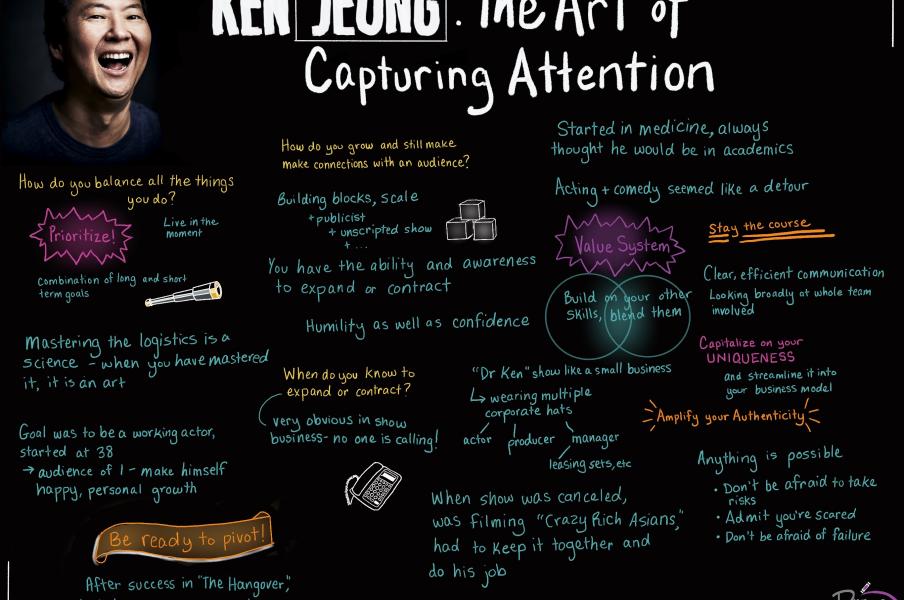 KEN JEONG: The Art of
Capturing Attention
How do you balance all the things
you do?
Prioritize!
Live in the
moment
Combination of long and short
term goals
Mastering the logistics is a
science - when you have mastered
it, it is an art
Goal was to be a working actor,
started at 38
→ audience of 1 - make himself
happy, personal growth
Be ready to pivot!
After success in "The Hangover,"
How do you grow and still make
make connections with an audience?
Building blocks, scale
+ publicist
+ unscripted show
+ ...
You have the ability and awareness
to expand or contract
Humility as well as confidence
When do you know to
expand or contract?
very obvious in show
business - no one is calling!
Started in medicine, always
thought he would be in academics
Acting + comedy seemed like a detour
Value System
Build on your other
skills, blend them
"Dr Ken" show like a small business
↳ wearing multiple
corporate hats
actor producer manager
leasing sets, etc
When show was canceled,
was filming "Crazy Rich Asians,"
had to keep it together and
do his job
Stay the course
Clear, efficient communication
Looking broadly at whole team
involved
Capitalize on your
UNIQUENESS
and streamline it into
your business model
Amplify your Authenticity
Anything is possible
• Don't be afraid to take
risks
• Admit you're scared
• Don't be afraid of failure